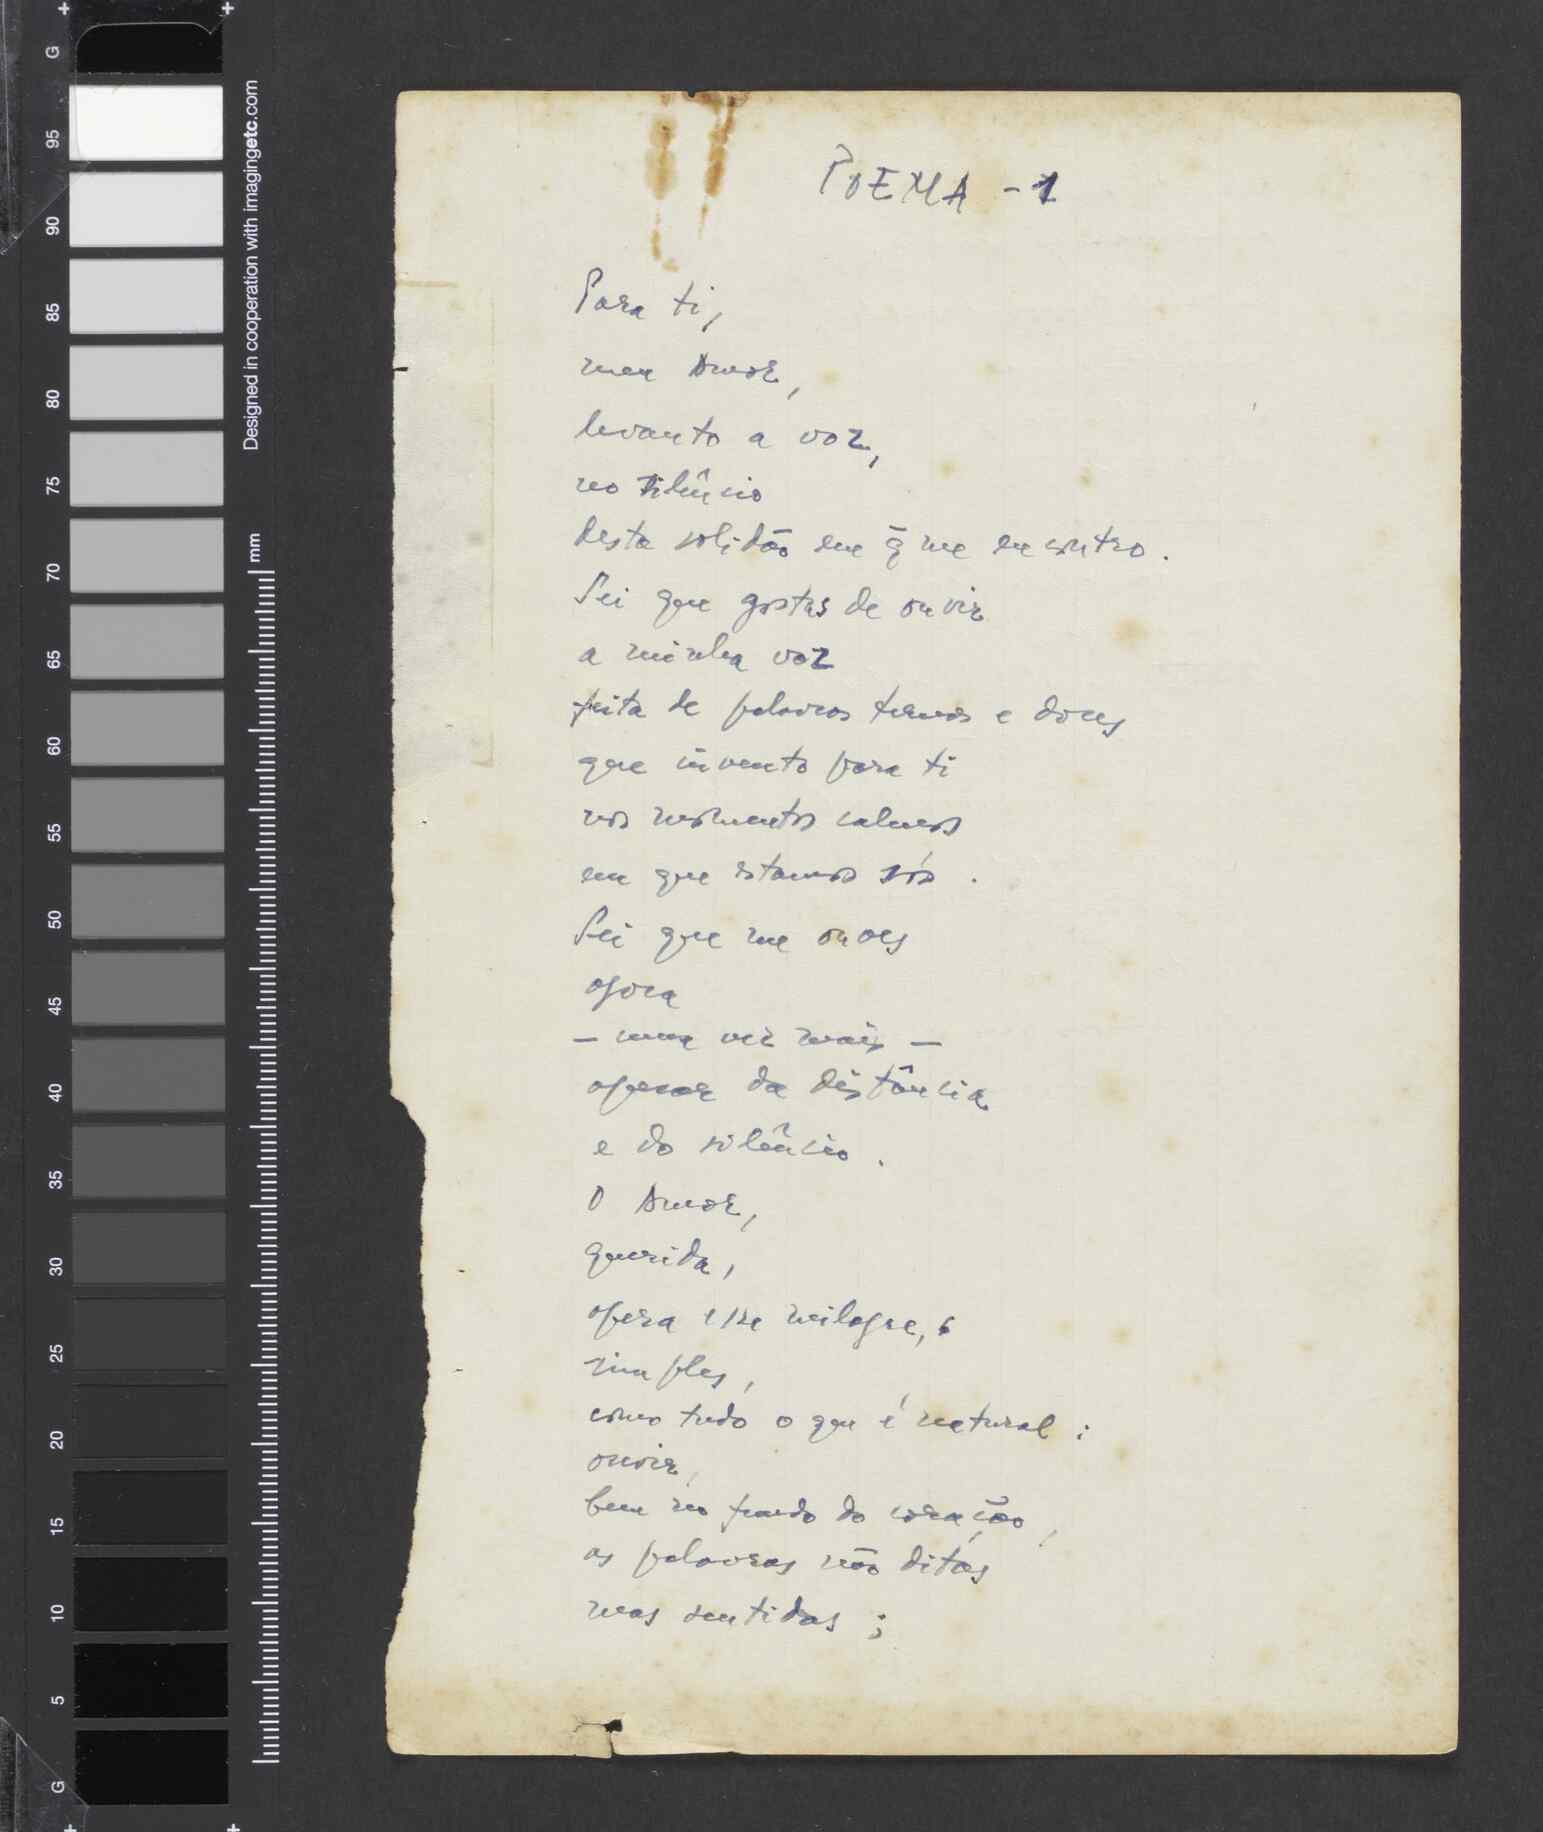 G
95
90
85
80
75
70
65
60
55
50
45
40
35
30
25
20
15
10
5
G
Designed in cooperation with imagingetc.com
mm
POEMA - 1
Para ti,
meu Amor,
levanto a voz,
no silêncio
desta solidão em q̄ me encontro.
Sei que gostas de ouvir
a minha voz
feita de palavras ternas e doces
que invento para ti
nos momentos calmos
em que estamos sós.
Sei que me ouves
agora
— uma vez mais —
apesar da distância
e do silêncio.
O Amor,
querida,
opera esse milagre,
simples,
como tudo o que é natural:
ouvir,
bem no fundo do coração,
as palavras não ditas
mas sentidas;